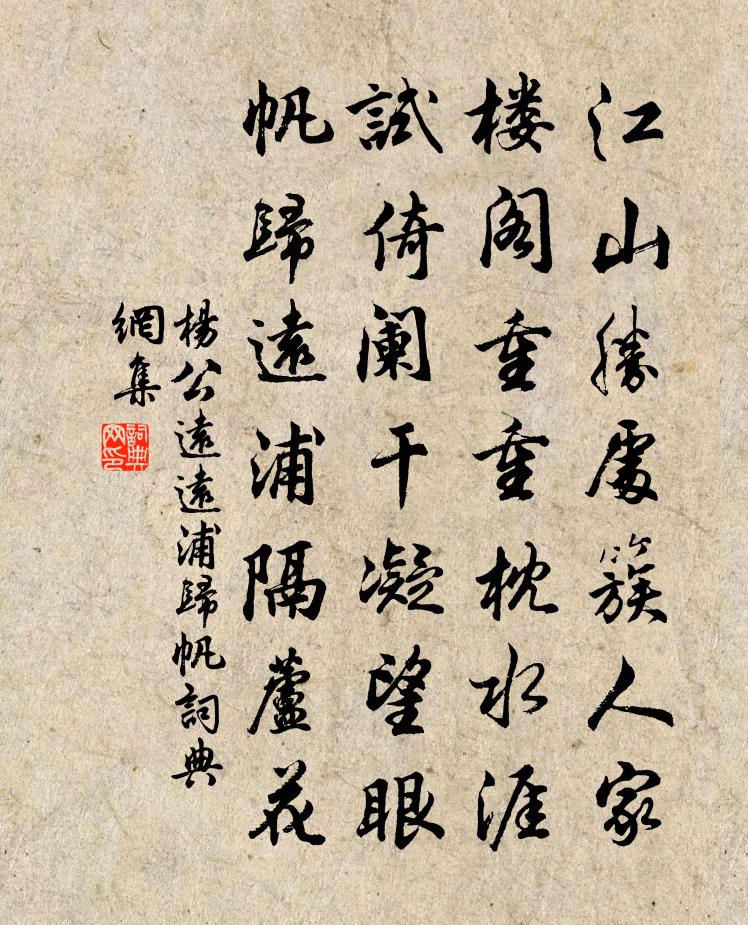 江山勝處簇人家
楼阁重重枕水涯
試倚阑干凝望眼
帆歸遠浦隔蘆花
楊公遠遠浦歸帆詞典
網集
詞典
网印